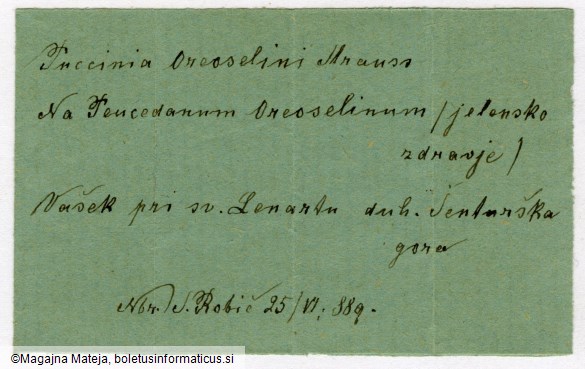 Puccinia Oreoselini Strauss
Na Peucedanum Oreoselinum (jelensko
zdravje)
Vašek pri sv. Lenartu duh. Šenturška
gora
Nbr. S. Robič 25/VI; 889.
©Magajna Mateja, boletusinformaticus.si